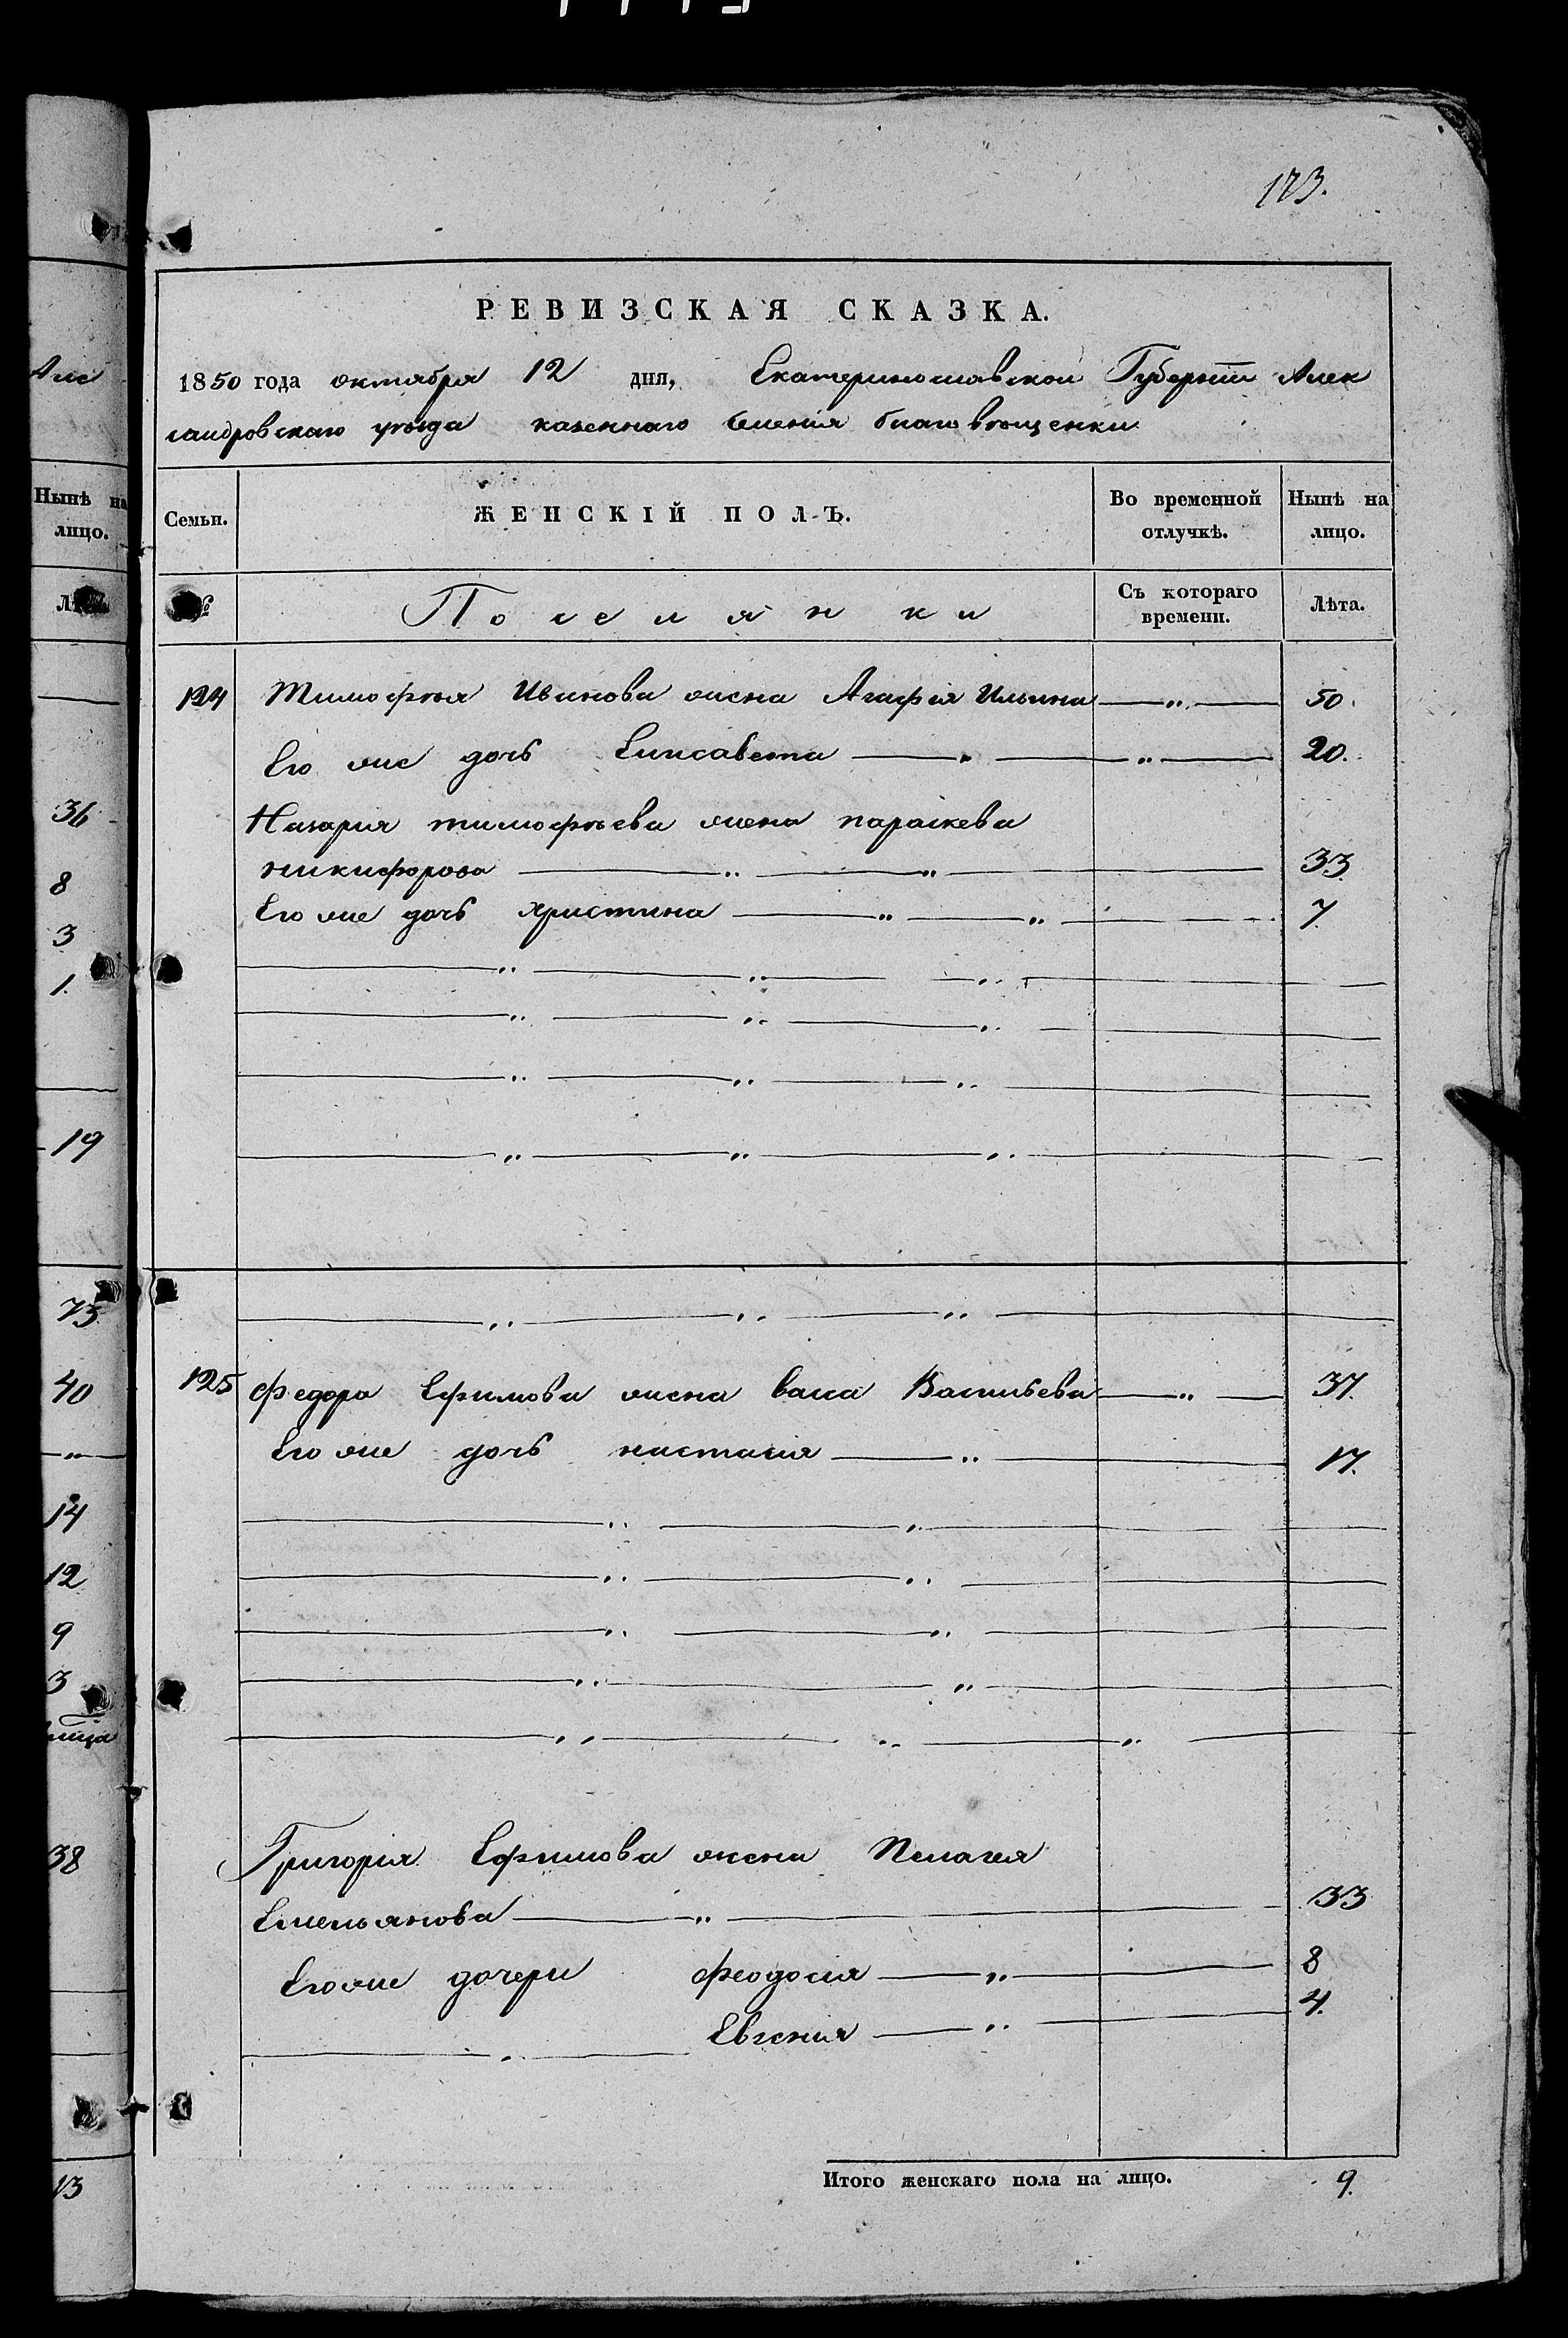 173.
РЕВИЗСКАЯ СКАЗКА.
1850 года октября 12 дня, Екатеринославской Губернiи Алек
сандровскаго уѣзда казеннаго селенiя благовѣщенки
Семьи. ЖЕНСКІЙ ПОЛЪ. Во временной отлучкѣ. Нынѣ на лицо.
№ Поселянки Съ котораго времени. Лѣта.
124 Тимофѣя Иванова жена Агафiя Ильина 50.
Его же дочь Елисавета 20.
Назария тимофѣева жена параскева
никифорова 33.
Его же дочь христина 7.
125 Федора Ефимова жена васса Васильева 37.
Его же дочь настасия 17.
Григорiя Ефимова жена Пелагея
Емельянова 33
Его же дочери феодосия 8
Евгения 4.
Итого женскаго пола на лицо. 9.
Нынѣ на
лицо.
36
8
3
1.
19
73
40
14
12
9
3
38
13